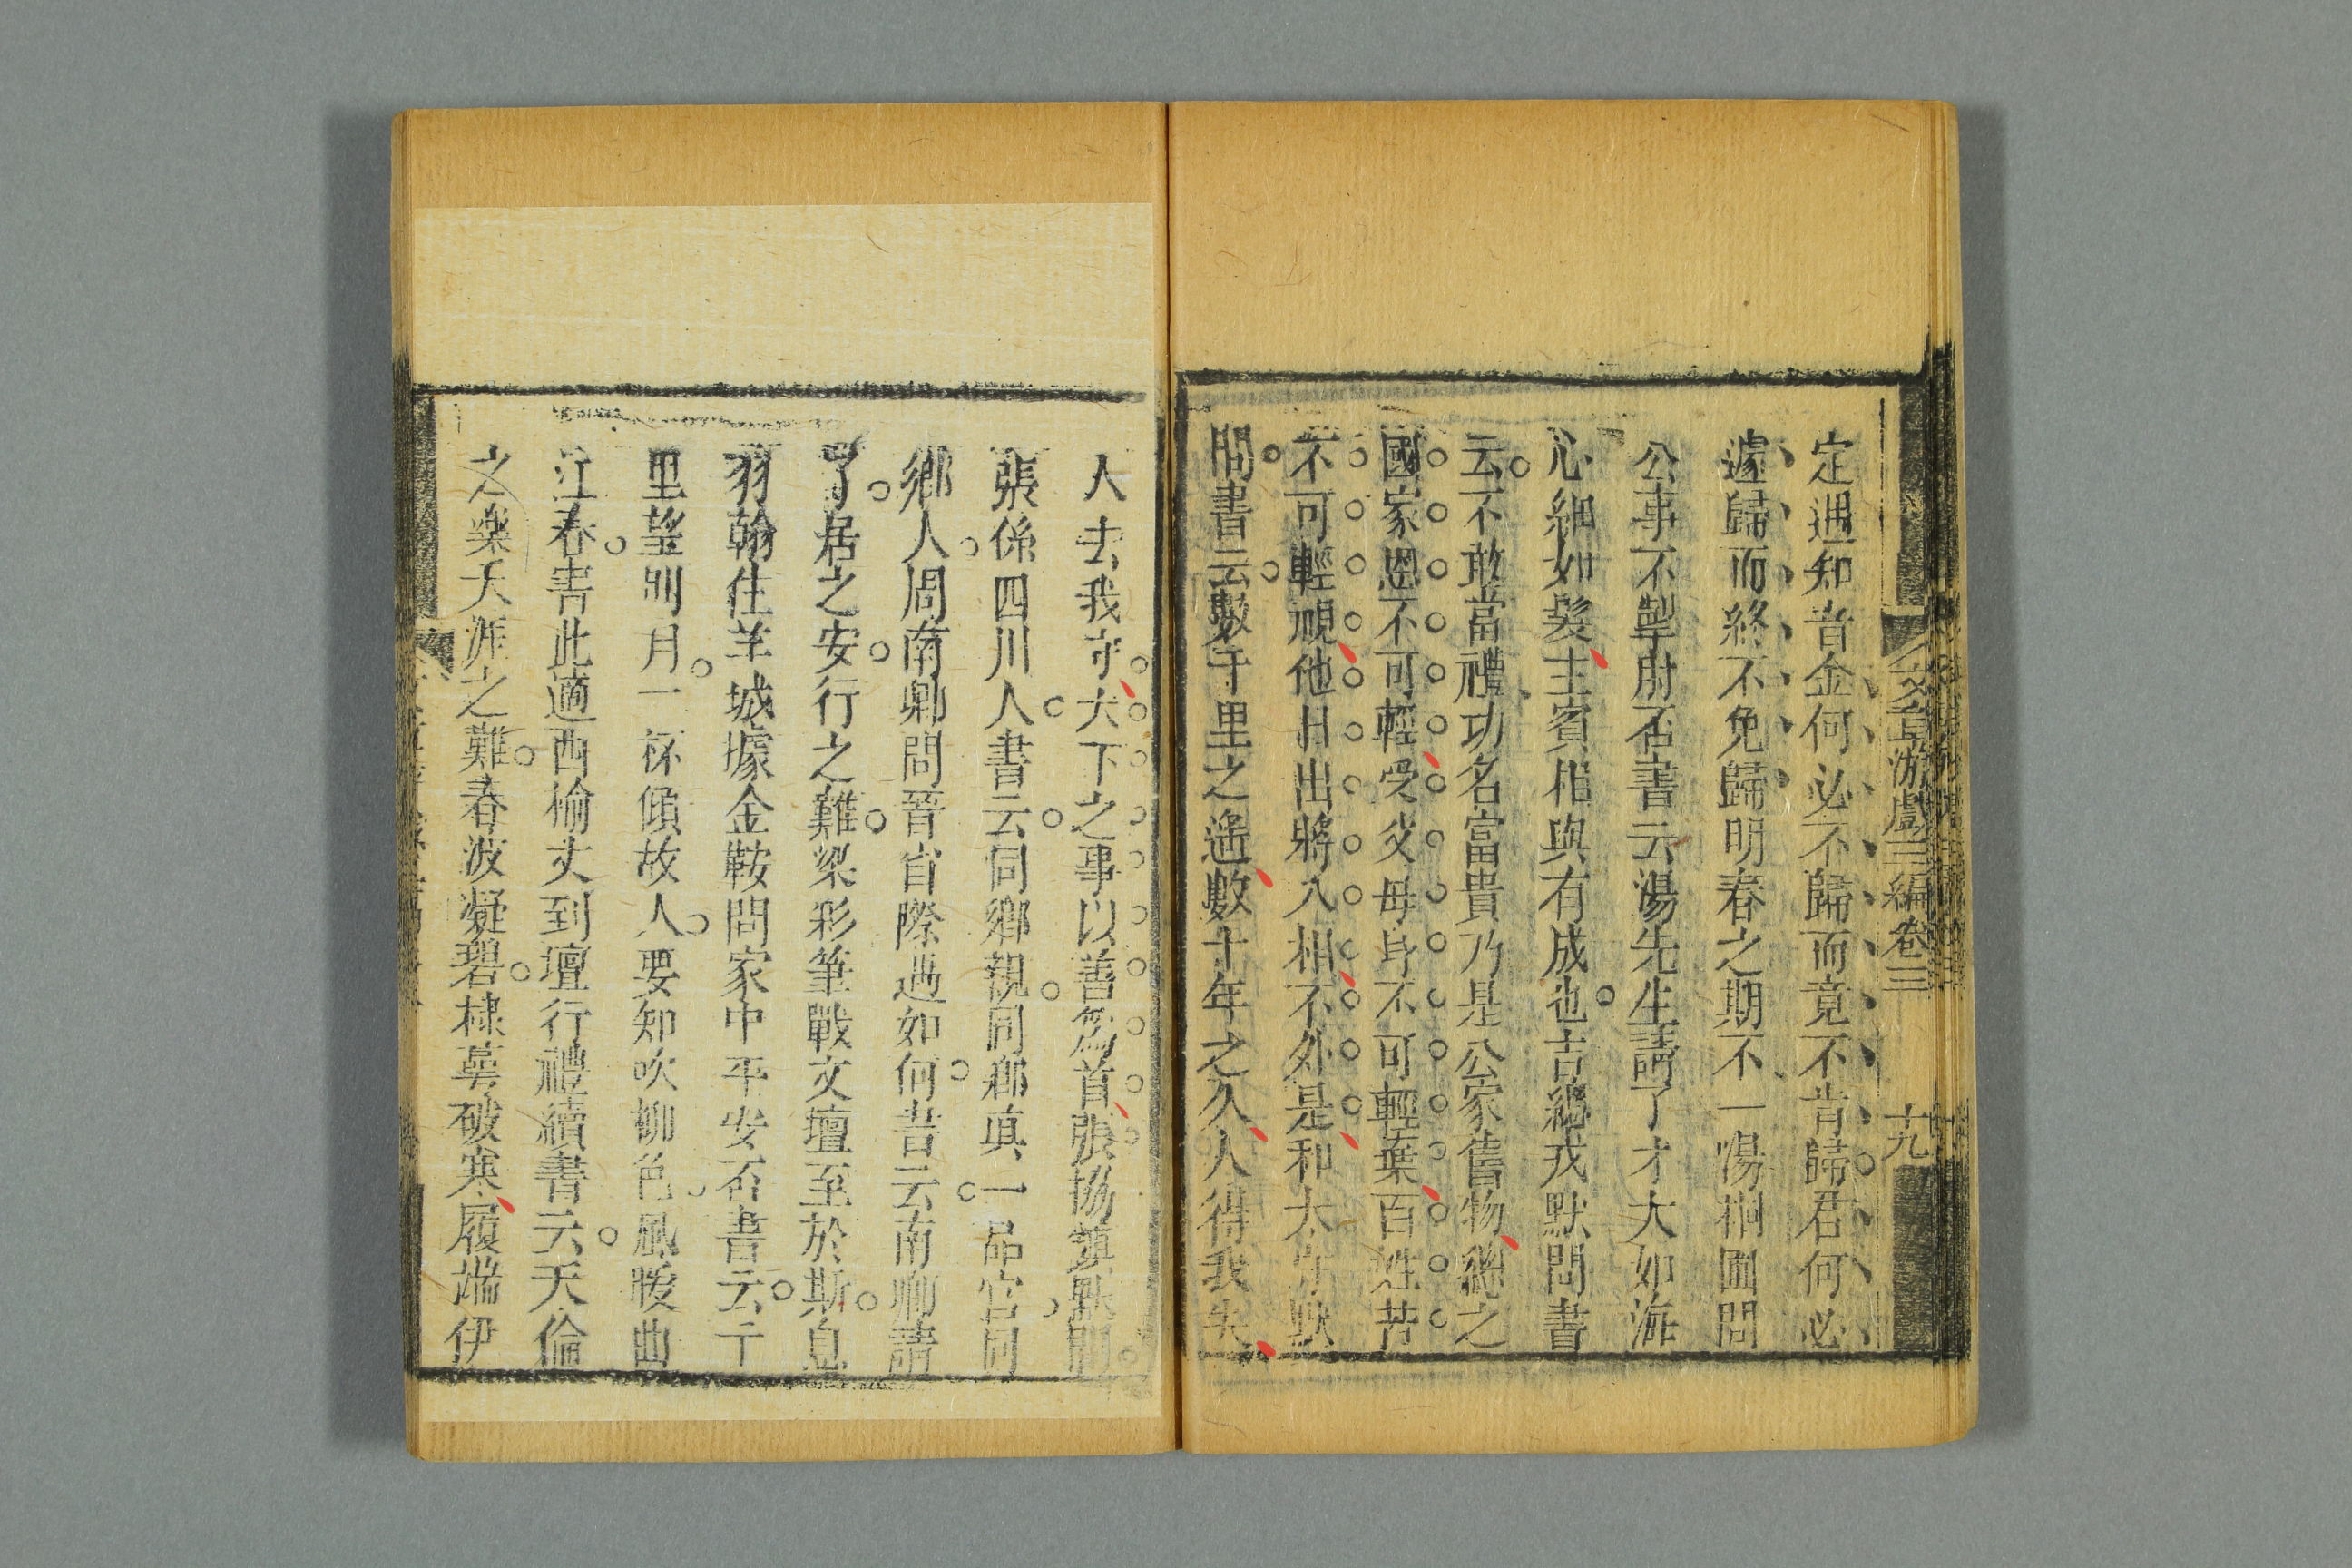 定遇知音金何必不歸而竟不肯歸君何必
遽歸而終不免歸明春之期不一湯桐圃問
公事不掣肘否書云湯先生請了才大如海
心細如髮主賓相與有成也吉總戎默問書
云不敢當禮功名富貴乃是公家舊物總之
國家恩不可輕受父母身不可輕棄百姓苦
不可輕視他日出將入相不外是和太守默
問書云數千里之遙數十年之久人得我失
人去我守大下之事以善爲首張協鎮默問
張係四川人書云同鄉親同鄉真一品官同
鄉人周南卿問晉省際遇如何書云南卿請
了居之安行之難梁彩筆戰文壇至於斯息
羽翰住羊城據金鞍問家中平安否書云千
里望明月一杯傾故人要知吹柳色風暖曲
江春書此適西愉丈到壇行禮續書云天倫
之樂天涯之難春波凝碧棣萼破寒履端伊
遊戲三編卷三
十九